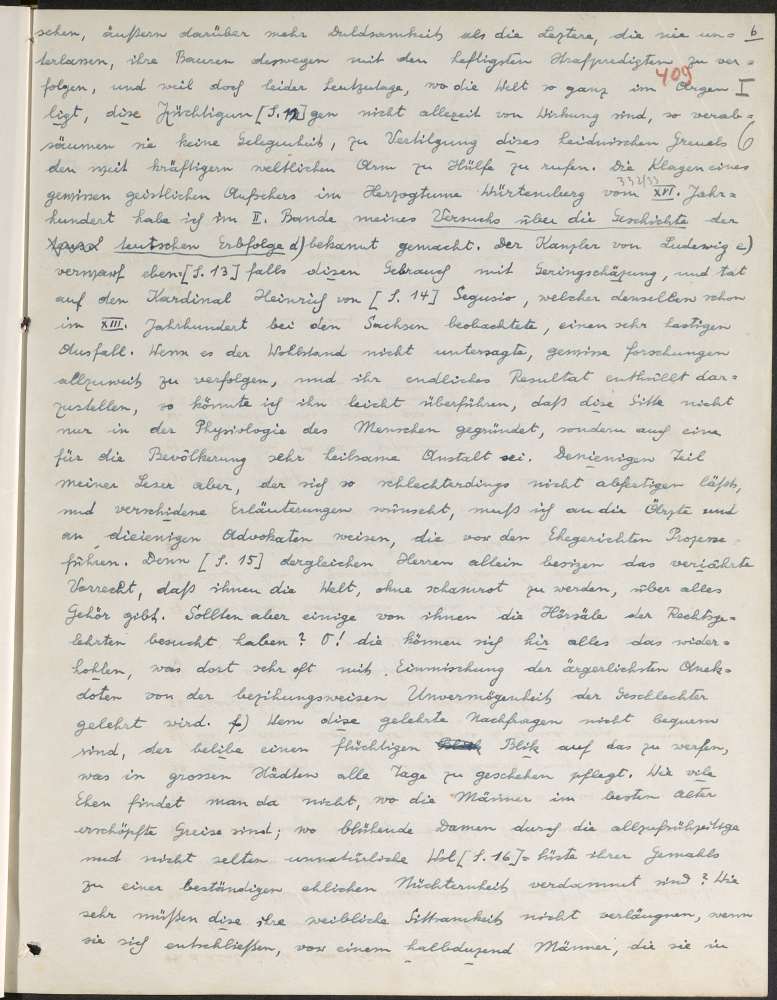 schen, äußern darüber mehr Duldsamkeit als die Leztere, die nie un= 6
terlassen, ihre Bauren deswegen mit den heftigsten Strafpredigten zu ver=
folgen, und weil doch leider heutzutage, wo die Welt so ganz im Argen 409 I
ligt, dise Züchtigun [S. 12] gen nicht allezeit von Wirkung sind, so verab=
säumen sie keine Gelegenheit, zu Vertilgung dises heidnischen Greuels
den weit kräftigern weltlichen Arm zu Hülfe zu rufen. Die Klagen eines
gewissen geistlichen Aufsehers im Herzogtume Würtemberg vom XVI. Jahr=
hundert habe ich im II. Bande meines Versuchs über die Geschichte der
teutschen Erbfolge d) bekannt gemacht. Der Kanzler von Ludewig e)
verwarf eben [S. 13] falls disen Gebrauch mit Geringschäzung, und tat
auf den Kardinal Heinrich von [S. 14] Segusio, welcher denselben schon
im XIII. Jahrhundert bei den Sachsen beobachtete, einen sehr hastigen
Ausfall. Wenn es der Wohlstand nicht untersagte, gewisse Forschungen
allzuweit zu verfolgen, und ihr endliches Resultat enthüllt dar=
zustellen, so könnte ich ihn leicht überführen, daß dise Sitte nicht
nur in der Physiologie des Menschen gegründet, sondern auch eine
für die Bevölkerung sehr heilsame Anstalt sei. Denienigen Teil
meiner Leser aber, der sich so schlechterdings nicht abfertigen läßt,
und verschidene Erläuterungen wünscht, muß ich an die Ärzte und
an dieienigen Advokaten weisen, die vor den Ehegerichten Prozesse
führen. Denn [S. 15] dergleichen Herren allein besizen das veriährte
Vorrecht, daß ihnen die Welt, ohne schamrot zu werden, über alles
Gehör gibt. Sollten aber einige von ihnen die Hörsäle der Rechtsge=
lehrten besucht haben? O! die können sich hir alles das wider=
hohlen, was dort sehr oft mit Einmischung der ärgerlichsten Anek=
doten von der bezihungsweisen Unvermögenheit der Geschlechter
gelehrt wird. f) Wem dise gelehrte Nachfragen nicht bequem
sind, der belibe einen flüchtigen Blik auf das zu werfen,
was in grossen Städten alle Tage zu geschehen pflegt. Wie vile
Ehen findet man da nicht, wo die Männer im besten Alter
erschöpfte Greise sind; wo blühende Damen durch die allzufrühzeitige
und nicht selten unnatürliche Wol [S. 16] = lüste ihrer Gemahls
zu einer beständigen ehlichen Nüchternheit verdammt sind? Wie
sehr müßen dise ihre weibliche Sittsamkeit nicht verläugnen, wenn
sie sich entschließen, vor einem halbduzend Männer, die sie in